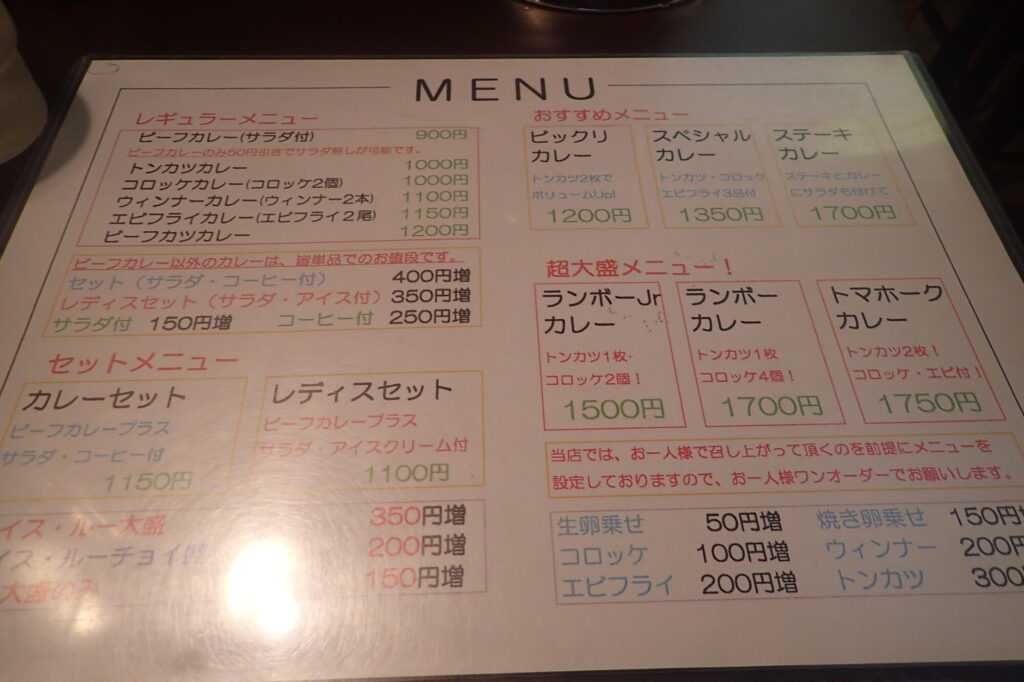 MENU
レギュラーメニュー
ビーフカレー(サラダ付) 900円
ビーフカレーのみ50円引きでサラダ無しが可能です。
トンカツカレー 1000円
コロッケカレー(コロッケ2個) 1000円
ウィンナーカレー(ウィンナー2本) 1100円
エビフライカレー(エビフライ2尾) 1150円
ビーフカツカレー 1200円
ビーフカレー以外のカレーは、皆単品でのお値段です。
セット(サラダ・コーヒー付) 400円増
レディスセット(サラダ・アイス付) 350円増
サラダ付 150円増 コーヒー付 250円増
セットメニュー
カレーセット
ビーフカレープラス
サラダ・コーヒー付
1150円
レディスセット
ビーフカレープラス
サラダ・アイスクリーム付
1100円
イス・ルー大盛 350円増
イス・ルーチョイ 200円増
大盛のみ 150円増
おすすめメニュー
ビックリ
カレー
トンカツ2枚で
ボリュームUp!
1200円
スペシャル
カレー
トンカツ・コロッケ
エビフライ3品付
1350円
ステーキ
カレー
ステーキとカレー
にサラダも付けて
1700円
超大盛メニュー!
ランボーJr
カレー
トンカツ1枚
コロッケ2個!
1500円
ランボー
カレー
トンカツ1枚
コロッケ4個!
1700円
トマホーク
カレー
トンカツ2枚!
コロッケ・エビ付!
1750円
当店では、お一人様で召し上がって頂くのを前提にメニューを
設定しておりますので、お一人様ワンオーダーでお願いします。
生卵乗せ 50円増 焼き卵乗せ 150円
コロッケ 100円増 ウィンナー 200円
エビフライ 200円増 トンカツ 300